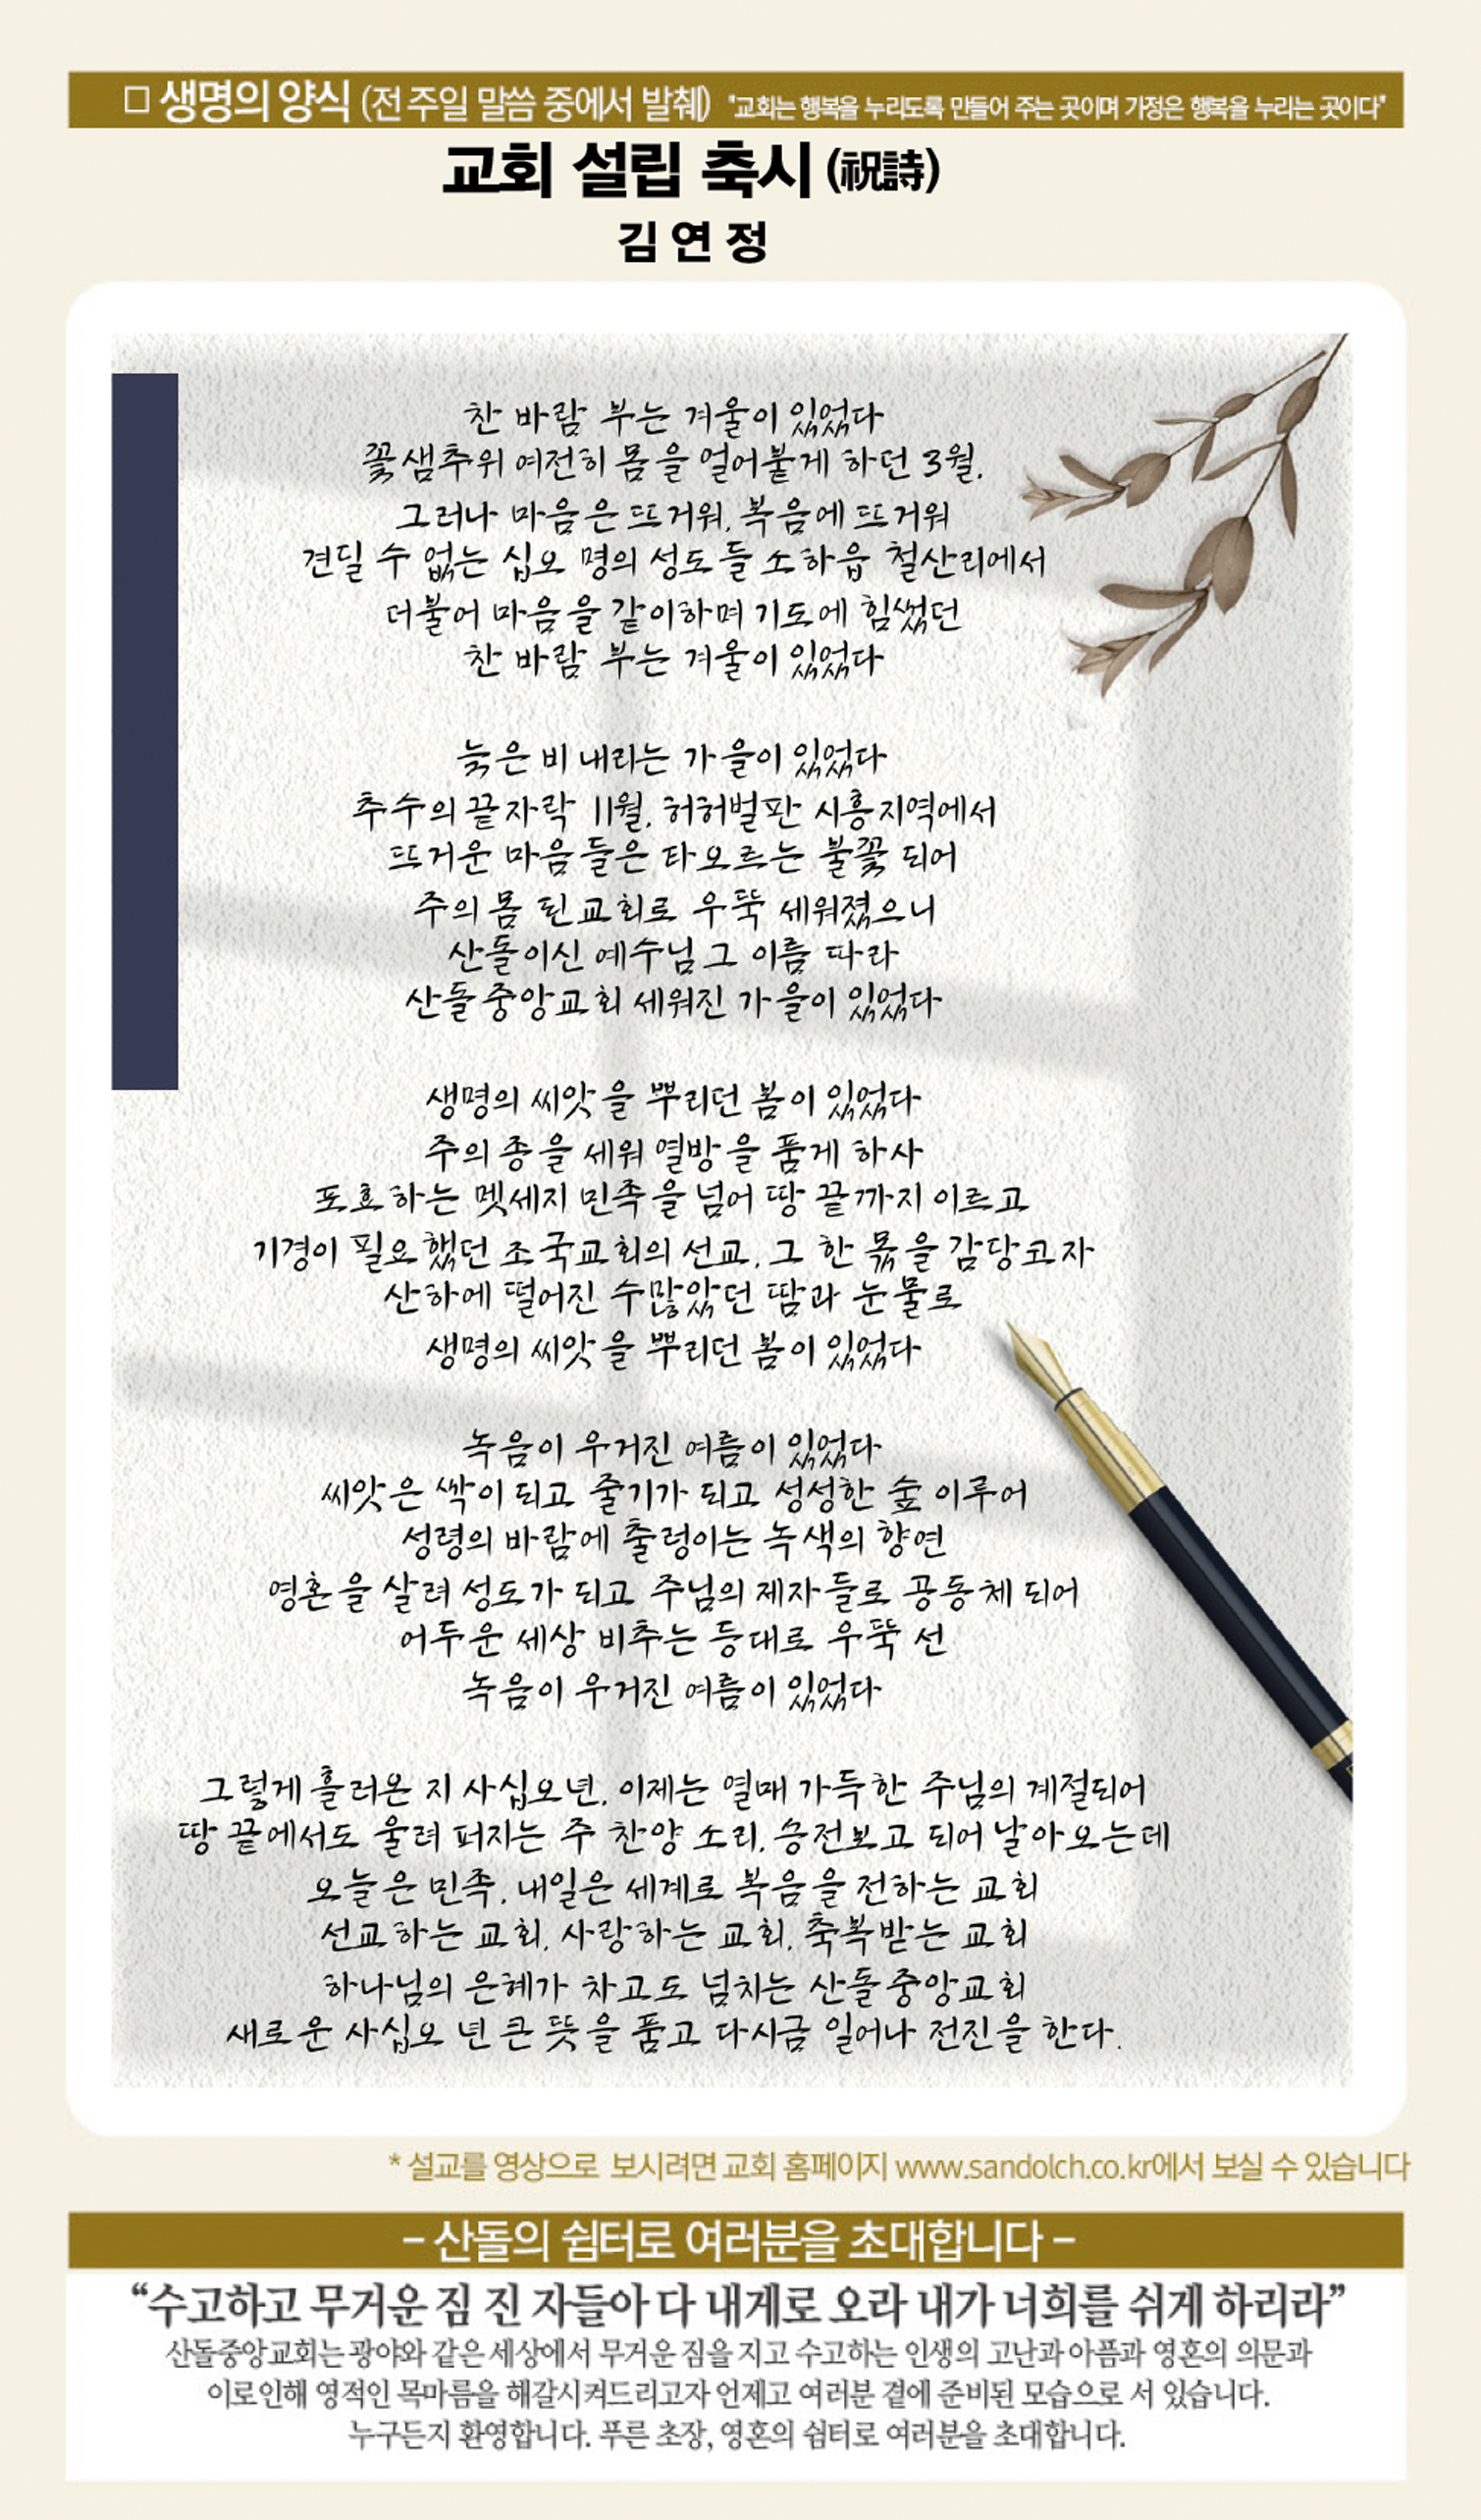 □ 생명의 양식 (전 주일 말씀 중에서 발췌) "교회는 행복을 누리도록 만들어 주는 곳이며 가정은 행복을 누리는 곳이다"
교회 설립 축시 (祝詩)
김 연 정
찬 바람 부는 겨울이 있었다
꽃샘추위 여전히 몸을 얼어붙게 하던 3월,
그러나 마음은 뜨거워, 복음에 뜨거워
견딜 수 없는 십오 명의 성도들 소하읍 철산리에서
더불어 마음을 같이하며 기도에 힘썼던
찬 바람 부는 겨울이 있었다
늦은 비 내리는 가을이 있었다
추수의 끝자락 11월, 허허벌판 시흥지역에서
뜨거운 마음들은 타오르는 불꽃 되어
주의 몸 된 교회로 우뚝 세워졌으니
산돌이신 예수님 그 이름 따라
산돌중앙교회 세워진 가을이 있었다
생명의 씨앗을 뿌리던 봄이 있었다
주의 종을 세워 열방을 품게 하사
포효하는 멧세지 민족을 넘어 땅 끝까지 이르고
기경이 필요했던 조국교회의 선교, 그 한 몫을 감당코자
산하에 떨어진 수많았던 땀과 눈물로
생명의 씨앗을 뿌리던 봄이 있었다
녹음이 우거진 여름이 있었다
씨앗은 싹이 되고 줄기가 되고 성성한 숲 이루어
성령의 바람에 출렁이는 녹색의 향연
영혼을 살려 성도가 되고 주님의 제자들로 공동체 되어
어두운 세상 비추는 등대로 우뚝 선
녹음이 우거진 여름이 있었다
그렇게 흘러온 지 사십오년, 이제는 열매 가득한 주님의 계절되어
땅 끝에서도 울려 퍼지는 주 찬양 소리, 승전보고 되어 날아오는데
오늘은 민족, 내일은 세계로 복음을 전하는 교회
선교하는 교회, 사랑하는 교회, 축복받는 교회
하나님의 은혜가 차고도 넘치는 산돌중앙교회
새로운 사십오 년 큰 뜻을 품고 다시금 일어나 전진을 한다.
* 설교를 영상으로 보시려면 교회 홈페이지 www.sandolch.co.kr에서 보실 수 있습니다
– 산돌의 쉼터로 여러분을 초대합니다 –
“수고하고 무거운 짐 진 자들아 다 내게로 오라 내가 너희를 쉬게 하리라”
산돌중앙교회는 광야와 같은 세상에서 무거운 짐을 지고 수고하는 인생의 고난과 아픔과 영혼의 의문과
이로인해 영적인 목마름을 해갈시켜드리고자 언제고 여러분 곁에 준비된 모습으로 서 있습니다.
누구든지 환영합니다. 푸른 초장, 영혼의 쉼터로 여러분을 초대합니다.